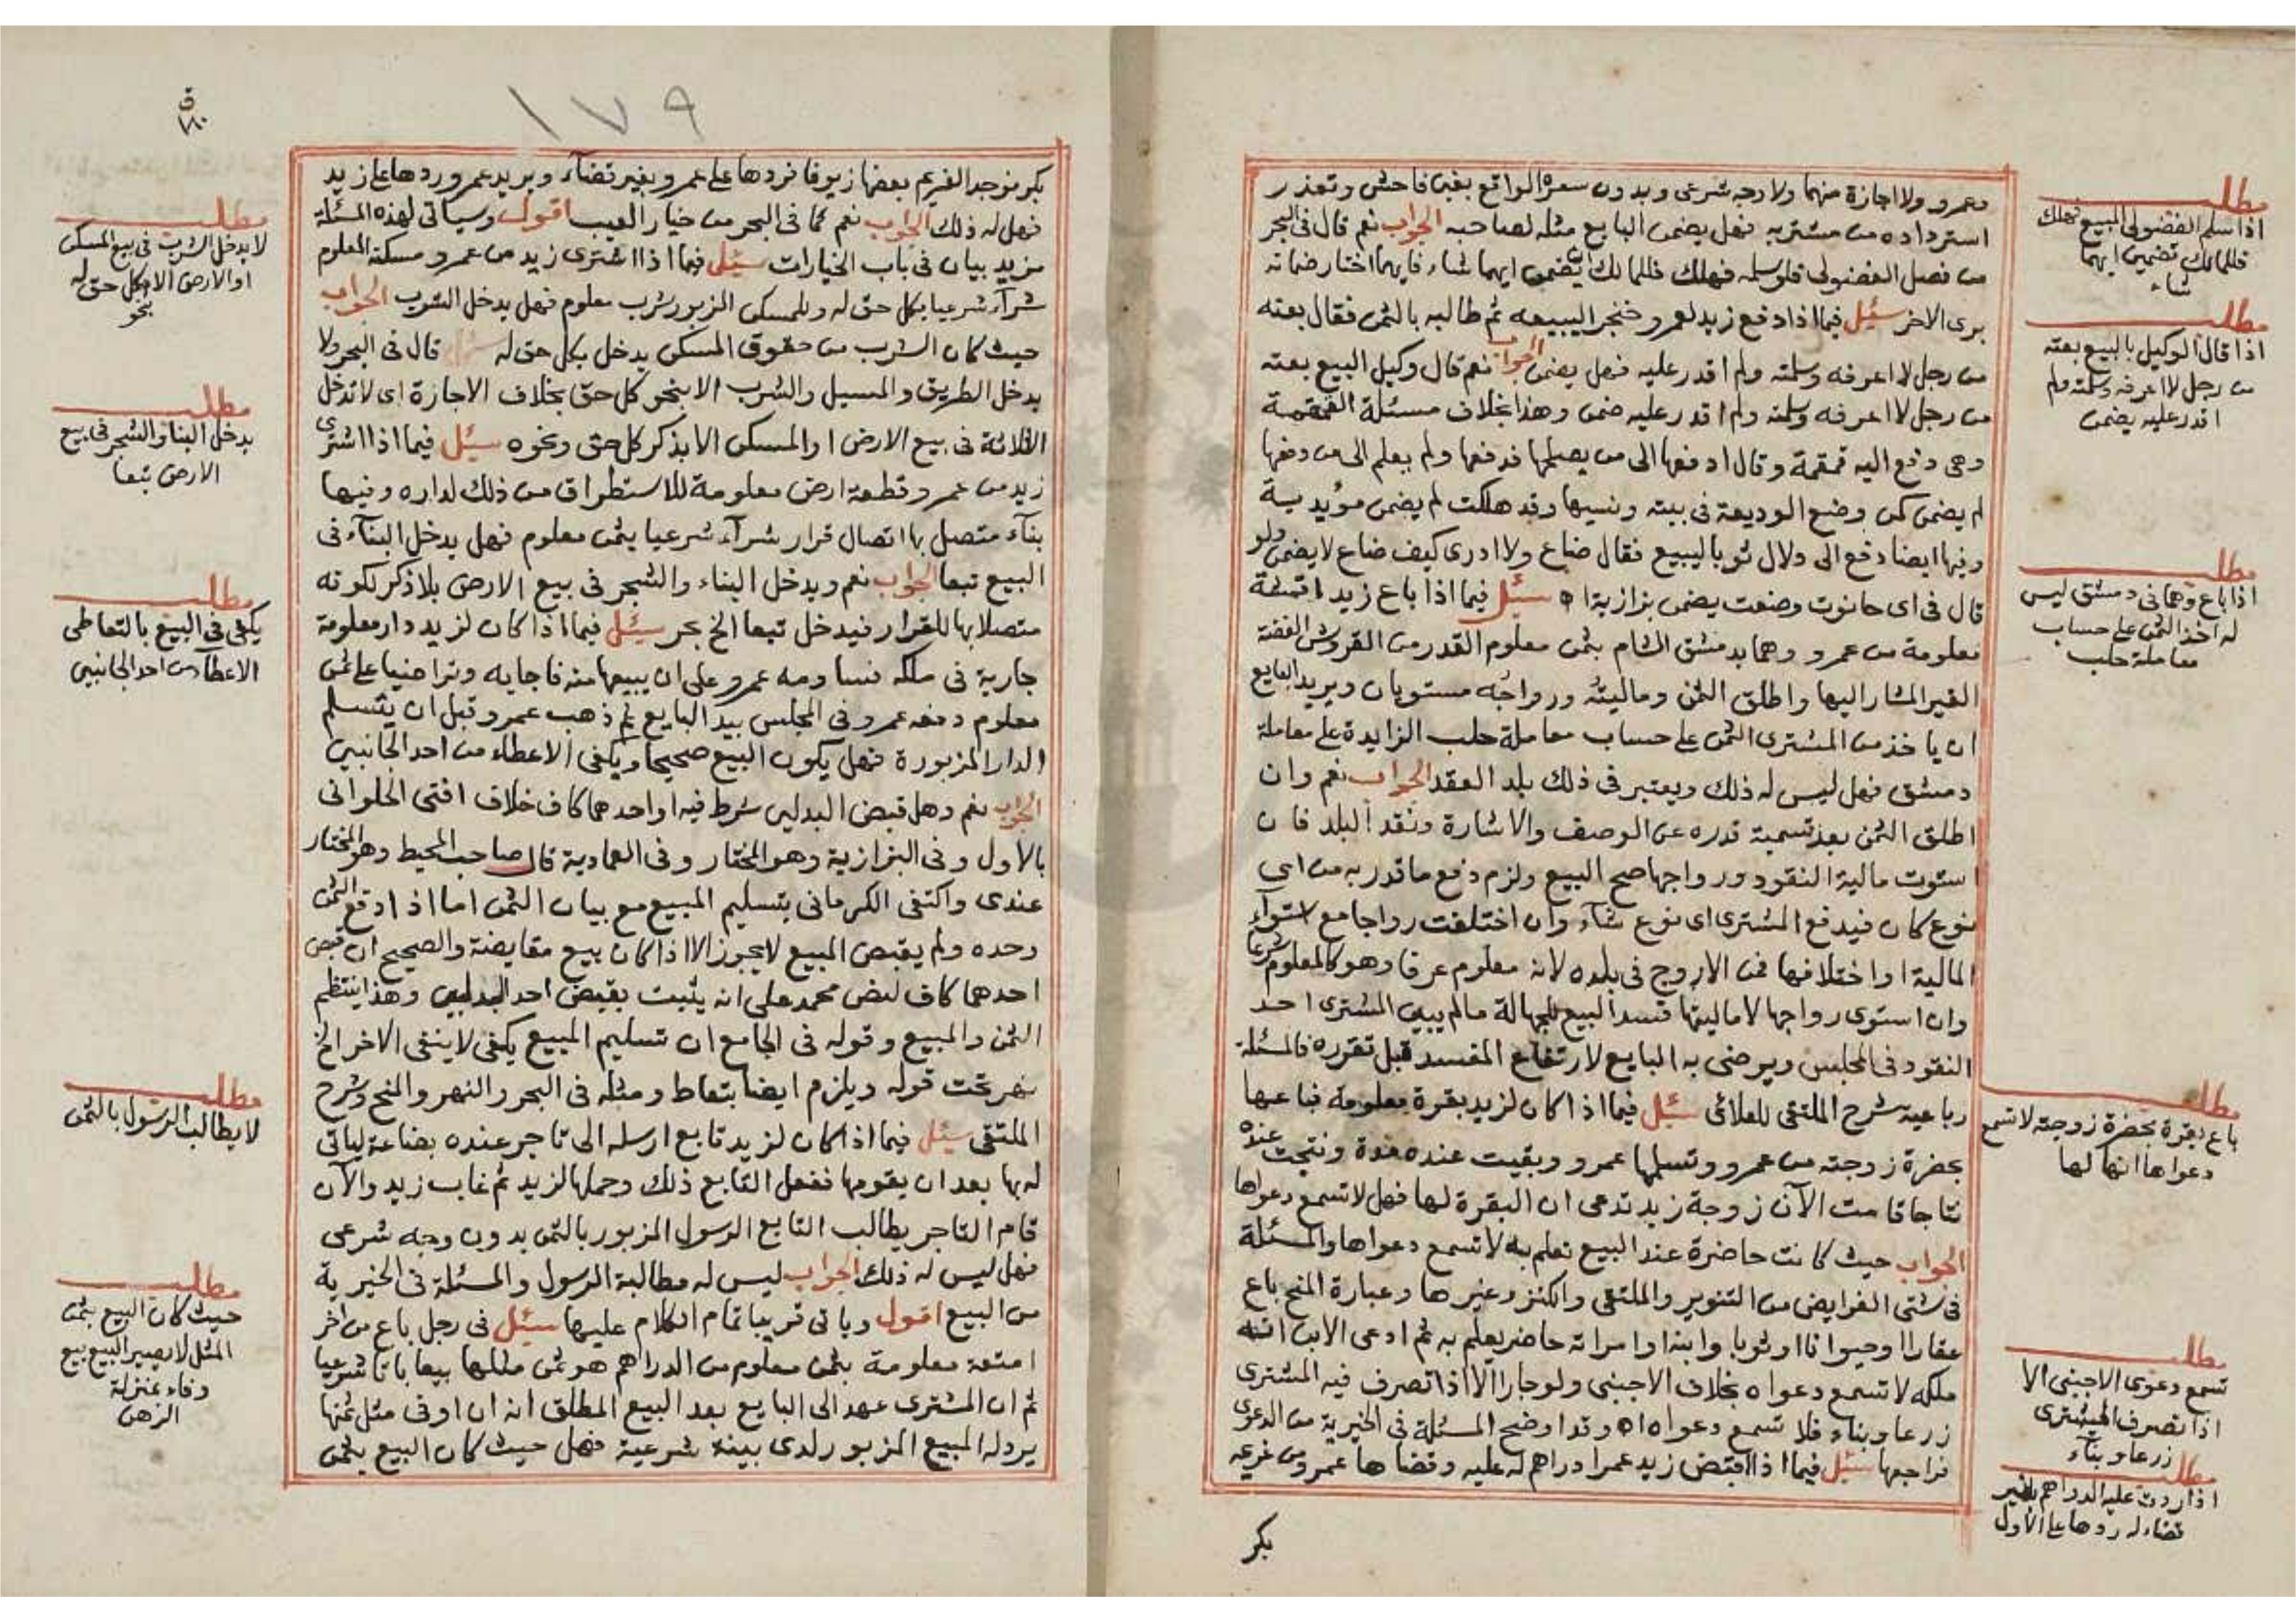 وعمرو ولا اجازة منهما ولا وجه شرعى وبدون سعره الواقع بغبن فاحش وتعذر
استرداده من مشتريه فهل يضمن البايع مثله لصاحبه الجواب نعم قال فى البحر
من فصل الفضولى فلو سلمه فهلك فللمالك ان يضمن ايهما شاء فايهما اختار ضمانه
برى الاخر سئل فيما اذا دفع زيد لعمرو خنجر اليبيعه ثم طالبه بالثمن فقال بعته
من رجل لا اعرفه وسلمته ولم اقدر عليه فهل يضمن الجواب نعم قال وكيل البيع بعته
من رجل لا اعرفه وسلمته ولم اقدر عليه ضمن وهذا بخلاف مسئلة القمقمة
وهى دفع اليه قمقمة وقال ادفعها الى من يصلحها فدفعها ولم يعلم الى من دفعها
لم يضمن كمن وضع الوديعة فى بيته ونسيها وقد هلكت لم يضمن مؤيدية
وفيها ايضا دفع الى دلال ثوبا ليبيع فقال ضاع ولا ادرى كيف ضاع لا يضمن ولو
قال فى اى حانوت وضعت يضمن بزازية اه سئل فيما اذا باع زيد اقمشة
معلومة من عمرو وهما بدمشق الشام بثمن معلوم القدر من القروش الفضة
الغير المشار اليها واطلق الثمن وماليته ورواجه مستويان ويريد البايع
ان ياخذ من المشترى الثمن على حساب معاملة حلب الزايدة على معاملة
دمشق فهل ليس له ذلك ويعتبر فى ذلك بلد العقد الجواب نعم وان
اطلق الثمن بعد تسمية قدره عن الوصف والاشارة ونقد البلد فان
استوت مالية النقود ورواجها صح البيع ولزم دفع ما قدر به من اى
نوع كان فيدفع المشترى اى نوع شآء وان اختلفت رواجا مع استوآء
المالية او اختلافها فمن الاروج فى بلده لانه معلوم عرفا وهو كالمعلوم شرعا
وان استوى رواجها لا ماليتها فسد البيع للجهالة مالم يبين المشترى احد
النقود فى المجلس ويرضى به البايع لارتفاع المفسد قبل تقرره فالمسئلة
رباعية شرح الملتقى للعلائى سئل فيما اذا كان لزيد بقرة معلومة فباعها
بحضرة زوجته من عمرو وتسلمها عمرو وبقيت عنده مدة ونتجت عنده
نتاجا قامت الآن زوجة زيد تدعى ان البقرة لها فهل لا تسمع دعواها
الجواب حيث كانت حاضرة عند البيع تعلم به لا تسمع دعواها والمسئلة
فى شتى الفرايض من التنوير والملتقى والكنز وغيرها وعبارة المنح باع
عقارا او حيوانا او ثوبا وابنه او امراته حاضر يعلم به ثم ادعى الابن انه
ملكه لا تسمع دعواه بخلاف الاجنبى ولو جارا الا اذا تصرف فيه المشترى
زرعا وبناء فلا تسمع دعواه اه وقد اوضح المسئلة فى الخيرية من الدعوى
فراجعها سئل فيما اذا اقبض زيد عمرا دراهم له عليه وقضاها عمرو من غريمه
بكر
مطلب
اذا سلم الفضولى المبيع فهلك
فللمالك تضمين ايهما
شاء
مطلب
اذا قال الوكيل بالبيع بعته
من رجل لا اعرفه وسلمته ولم
اقدر عليه يضمن
مطلب
اذا باع وهما فى دمشق ليس
له اخذ الثمن على حساب
معاملة حلب
مطلب
باع بقرة بحضرة زوجته لا تسمع
دعواها انها لها
مطلب
تسمع دعوى الاجنبى الا
اذا تصرف المشترى
زرعا وبنآء
مطلب
اذا ردت عليه الدراهم بغير
قضاء له ردها على الاول
١٧٩
بكر فوجد الغريم بعضها زيوفا فردها على عمرو بغير قضآء ويريد عمرو ردها على زيد
فهل له ذلك الجواب نعم كما فى البحر من خيار العيب اقول وسياتى لهذه المسئلة
مزيد بيان فى باب الخيارات سئل فيما اذا اشترى زيد من عمرو مسكنه المعلوم
شرآء شرعيا بكل حق له وللمسكن المزبور شرب معلوم فهل يدخل الشرب الجواب
حيث كان الشرب من حقوق المسكن يدخل بكل حق له قال فى البحر ولا
يدخل الطريق والمسيل والشرب الا بنحو كل حق بخلاف الاجارة اى لا تدخل
الثلاثة فى بيع الارض او المسكن الا بذكر كل حق ونحوه سئل فيما اذا اشترى
زيد من عمرو قطعة ارض معلومة للاستطراق من ذلك لداره وفيها
بنآء متصل بها اتصال قرار شرآء شرعيا بثمن معلوم فهل يدخل البنآء فى
البيع تبعا الجواب نعم ويدخل البناء والشجر فى بيع الارض بلا ذكر لكونه
متصلا بها للقرار فيدخل تبعا الخ بحر سئل فيما اذا كان لزيد دار معلومة
جارية فى ملكه فساومه عمرو على ان يبيعها منه فاجابه وتراضيا على ثمن
معلوم دفعه عمرو فى المجلس بيد البايع ثم ذهب عمرو قبل ان يتسلم
الدار المزبورة فهل يكون البيع صحيحا ويكفى الاعطاء من احد الجانبين
الجواب نعم وهل قبض البدلين شرط فيه او احدهما كاف خلاف افتى الحلوانى
بالاول وفى البزازية وهو المختار وفى العمادية قال صاحب المحيط وهو المختار
عندى واكتفى الكرمانى بتسليم المبيع مع بيان الثمن اما اذا دفع الثمن
وحده ولم يقبض المبيع لا يجوز الا اذا كان بيع مقايضة والصحيح ان قبض
احدهما كاف لنص محمد على انه يثبت بقبض احد البدلين وهذا ينتظم
الثمن والمبيع وقوله فى الجامع ان تسليم المبيع يكفى لا ينفى الاخر الخ
نهر تحت قوله ويلزم ايضا بتعاط ومثله فى البحر والنهر والمنح وشرح
الملتقى سئل فيما اذا كان لزيد تابع ارسله الى تاجر عنده بضاعة لياتى
له بها بعد ان يقومها ففعل التابع ذلك وحملها لزيد ثم غاب زيد والآن
قام التاجر يطالب التابع الرسول المزبور بالثمن بدون وجه شرعى
فهل ليس له ذلك الجواب ليس له مطالبة الرسول والمسئلة فى الخيرية
من البيع اقول وياتى قريبا تمام الكلام عليها سئل فى رجل باع من اخر
امتعة معلومة بثمن معلوم من الدراهم هو ثمن مثلها بيعا باتا شرعيا
ثم ان المشترى عهد الى البايع بعد البيع المطلق انه ان اوفى مثل ثمنها
يرد له المبيع المزبور لدى بينة شرعية فهل حيث كان البيع بثمن
مطلب
لا يدخل الشرب فى بيع المسكن
او الارض الا بكل حق له
بحر
مطلب
يدخل البنا والشجر فى بيع
الارض تبعا
مطلب
يكفى فى البيع بالتعاطى
الاعطآء من احد الجانبين
مطلب
لا يطالب الرسول بالثمن
مطلب
حيث كان البيع بثمن
المثل لا يصير البيع بيع
وفاء بمنزلة
الرهن